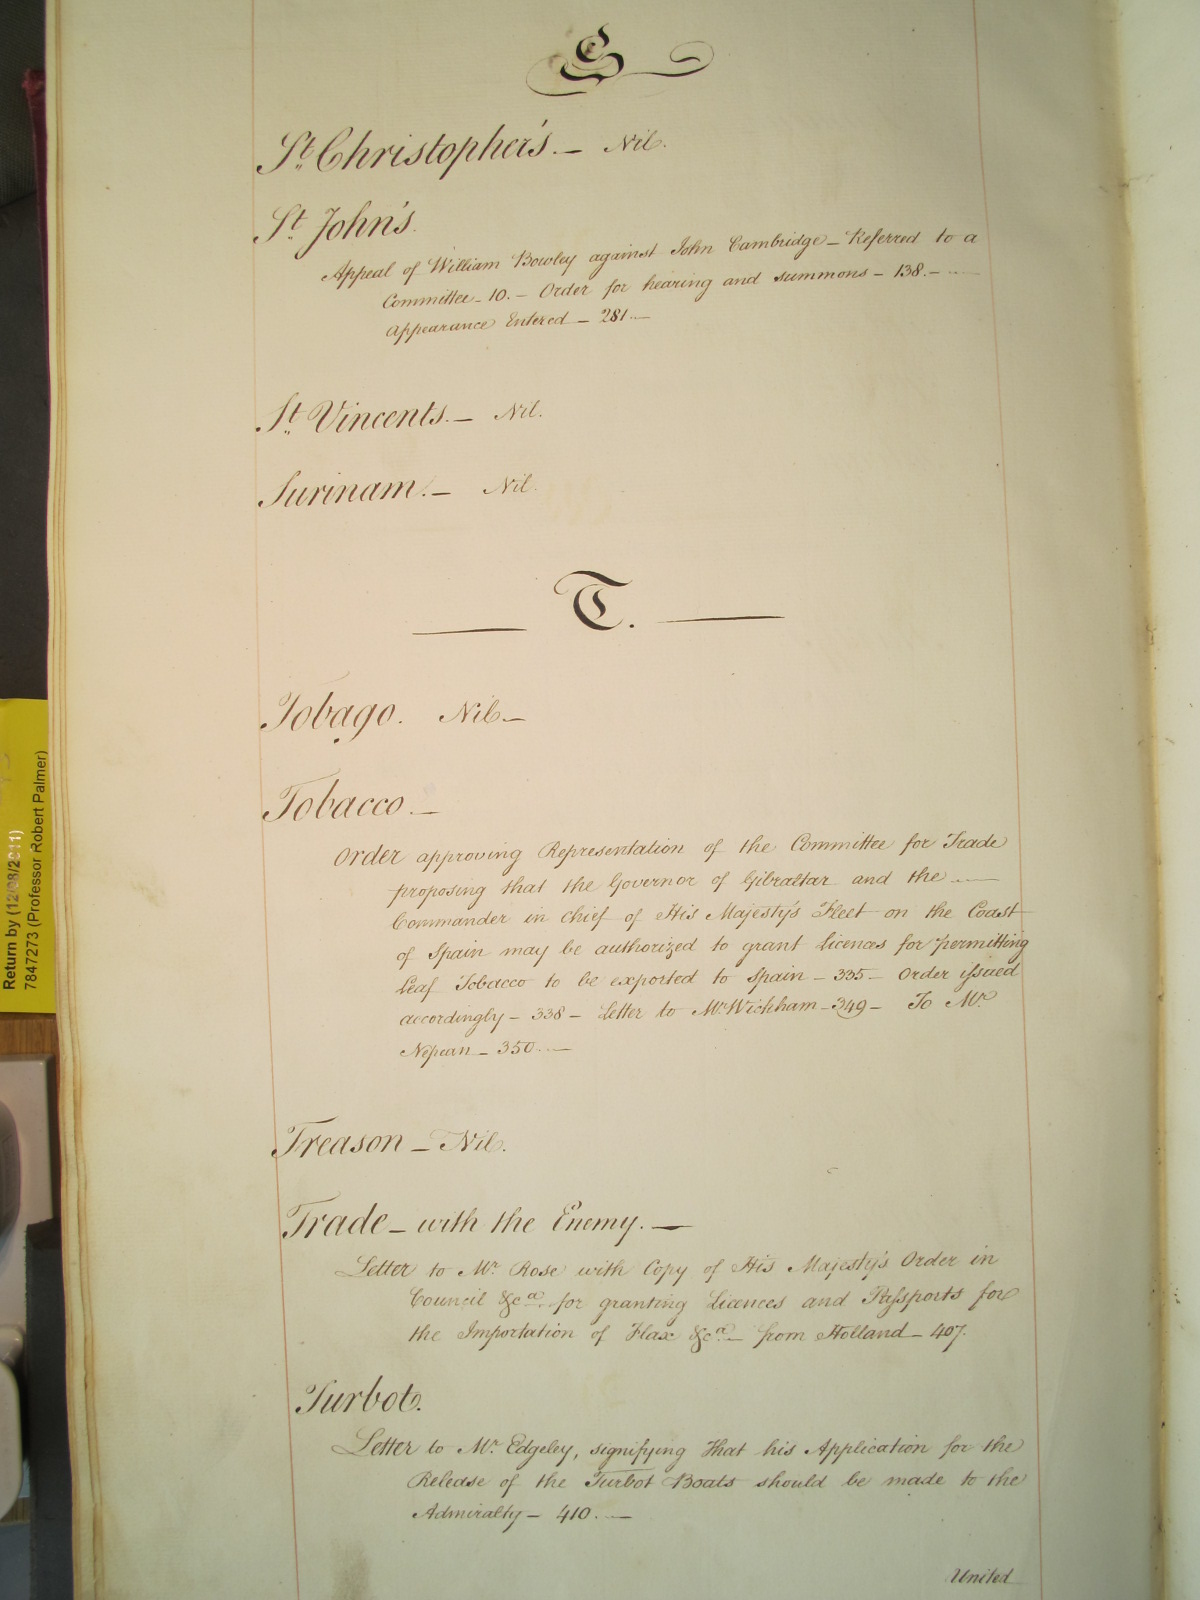 S
St. Christopher's. — Nil.
St. John's.
Appeal of William Bowley against John Cambridge — Referred to a
Committee — 10. — Order for hearing and summons — 138. —
Appearance Entered — 281. —
St. Vincents. — Nil.
Surinam. — Nil.
T.
Tobago. Nil —
Tobacco. —
Order approving Representation of the Committee for Trade
proposing that the Governor of Gibraltar and the —
Commander in chief of His Majesty's Fleet on the Coast
of Spain may be authorized to grant Licences for permitting
Leaf Tobacco to be exported to Spain — 335 — Order issued
accordingly — 338 — Letter to Mr. Wickham — 349 — To Mr.
Nepean — 350. —
Treason — Nil.
Trade — with the Enemy. —
Letter to Mr. Rose with Copy of His Majesty's Order in
Council &ca. for granting Licences and Passports for
the Importation of Flax &ca. — from Holland — 407.
Turbot.
Letter to Mr. Edgeley, signifying that his Application for the
Release of the Turbot Boats should be made to the
Admiralty — 410. —
United
Return by (12/08/2011)
7847273 (Professor Robert Palmer)